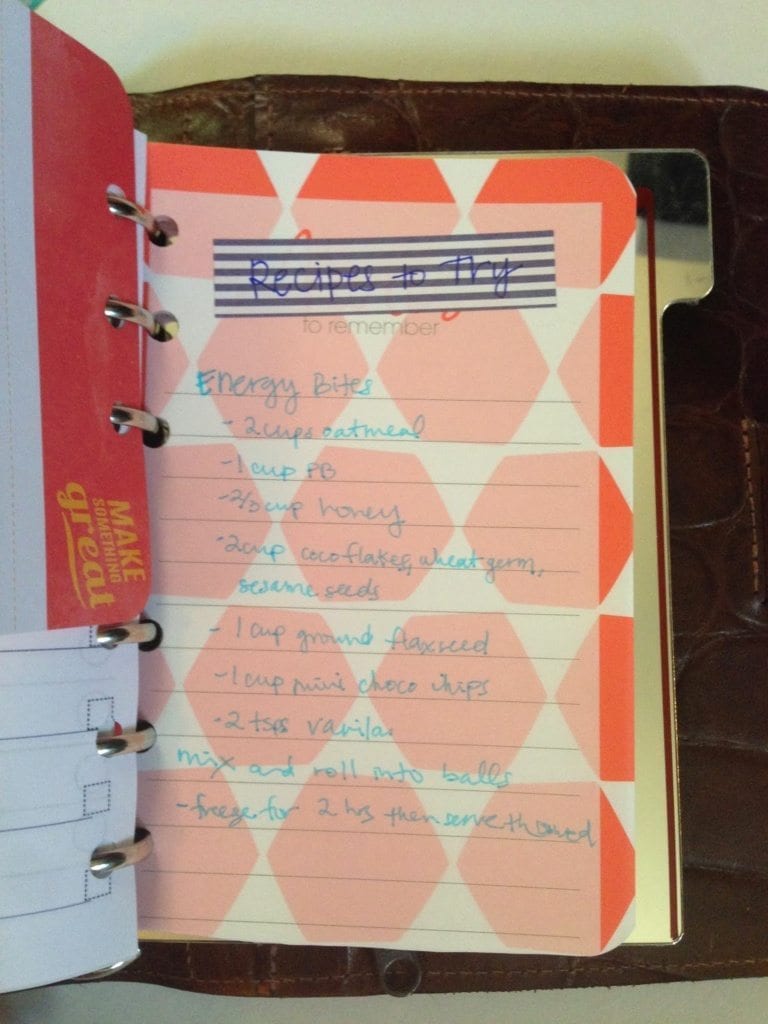 Recipes to Try
to remember
Energy Bites
- 2 cups oatmeal
- 1 cup PB
- 2/3 cup honey
- 2 cup coco flakes, wheat germ,
sesame seeds
- 1 cup ground flaxseed
- 1 cup mini choco chips
- 2 tsps vanilla
mix and roll into balls
- freeze for 2 hrs then serve thawed
MAKE
SOMETHING
great